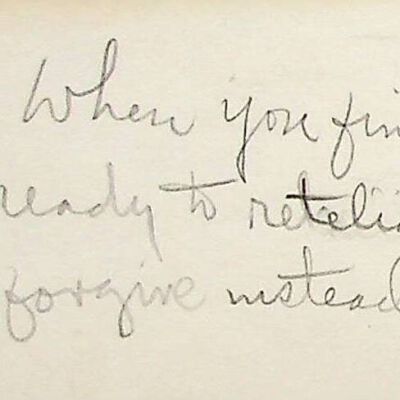 When you fin
ready to retelia
forgive instead